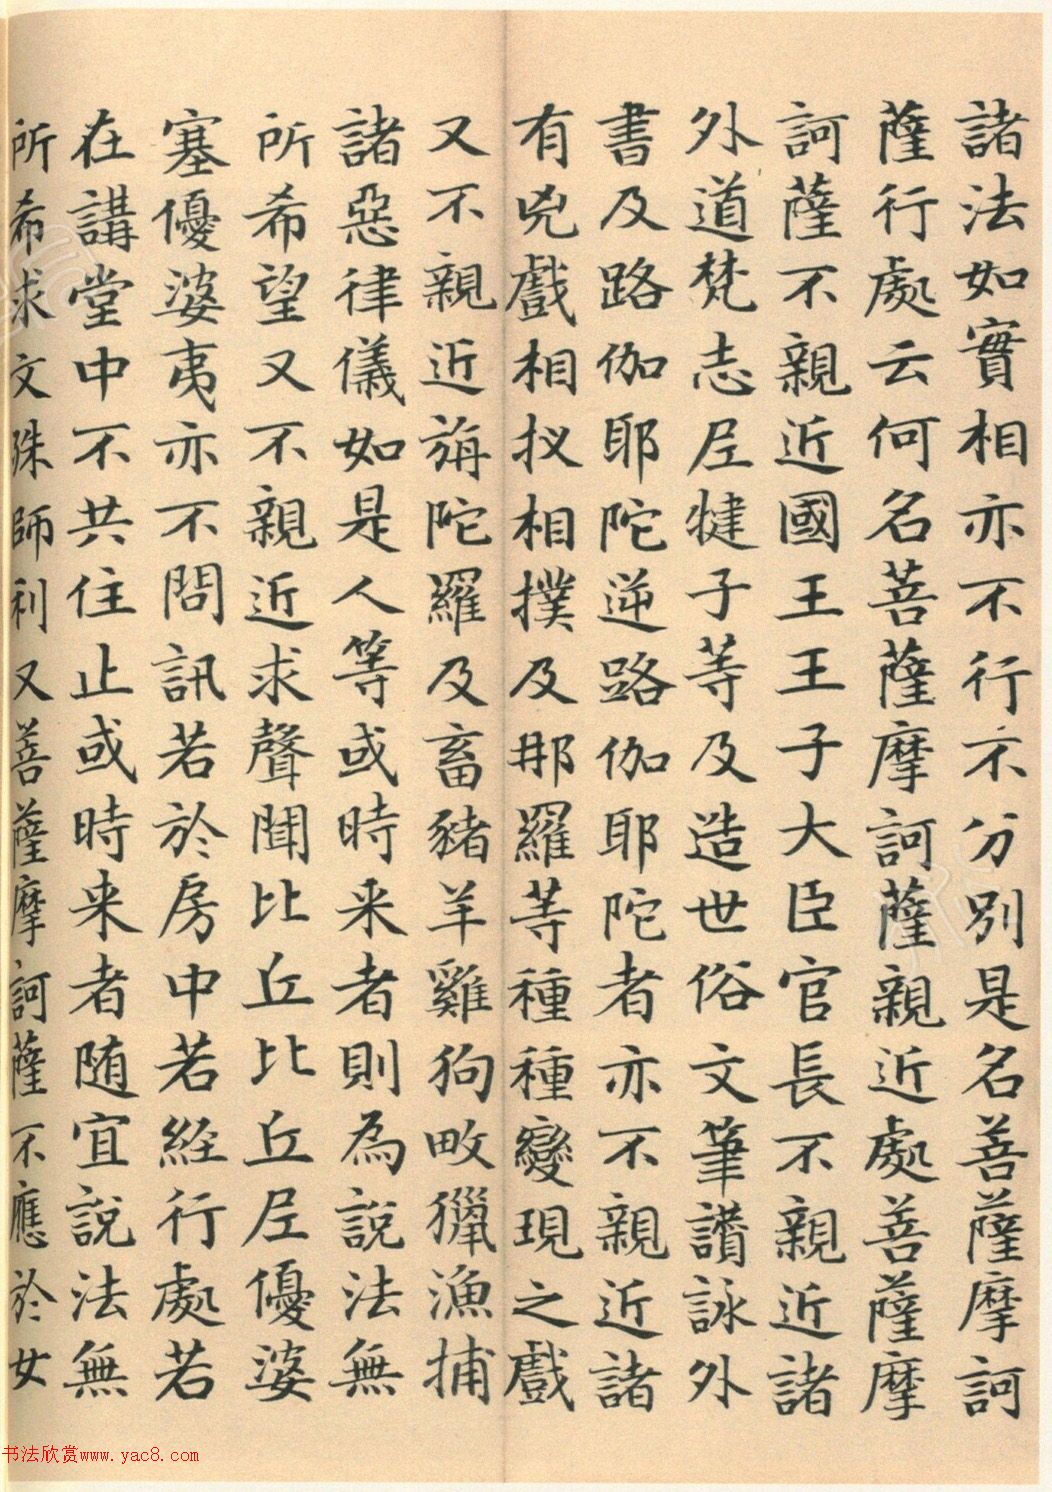 諸法如實相亦不行不分別是名菩薩摩訶
薩行處云何名菩薩摩訶薩親近處菩薩摩
訶薩不親近國王王子大臣官長不親近諸
外道梵志尼犍子等及造世俗文筆讚詠外
書及路伽耶陀逆路伽耶陀者亦不親近諸
有兇戲相扠相撲及那羅等種種變現之戲
又不親近旃陀羅及畜豬羊雞狗畋獵漁捕
諸惡律儀如是人等或時来者則為說法無
所希望又不親近求聲聞比丘比丘尼優婆
塞優婆夷亦不問訊若於房中若經行處若
在講堂中不共住止或時来者随宜說法無
所希求文殊師利又菩薩摩訶薩不應於女
书法欣赏www.yac8.com